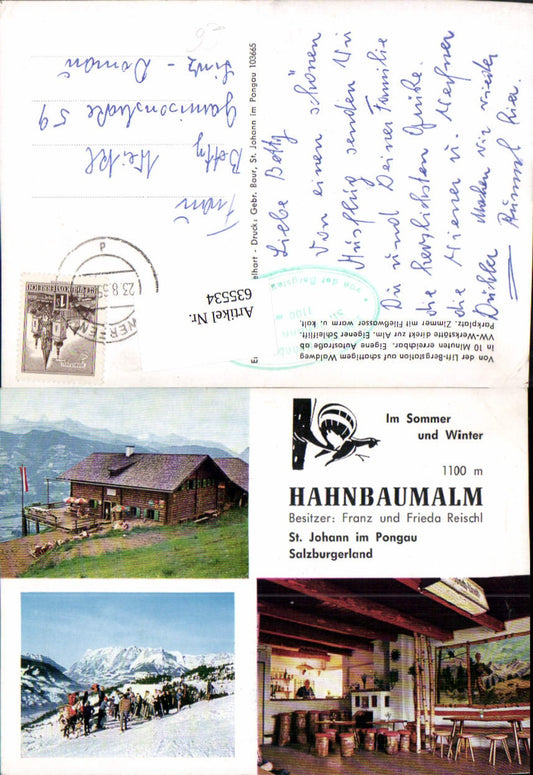 Liebe Betty
Von einen schönen
Ausflug senden wir
Dir und Deiner Familie
die herzlichsten Grüße.
die Wiener u.
wir wieder
einmal hier.
Frau
Betty
Garnisonstraße 59
Linz -
103665
Druck: Gebr. Baur, St. Johann im Pongau
Artikel Nr.
635534
23.8.
REPUBLIK ÖSTERREICH
von der Bergstat
1100 m
Von der Lift-Bergstation auf schattigem Waldweg
in 10 Minuten erreichbar. Eigene Autostraße ab
VW-Werkstätte direkt zur Alm. Eigener Schlepplift.
Parkplatz. Zimmer mit Fließwasser warm u. kalt.
Im Sommer
und Winter
1100 m
HAHNBAUMALM
Besitzer: Franz und Frieda Reischl
St. Johann im Pongau
Salzburgerland